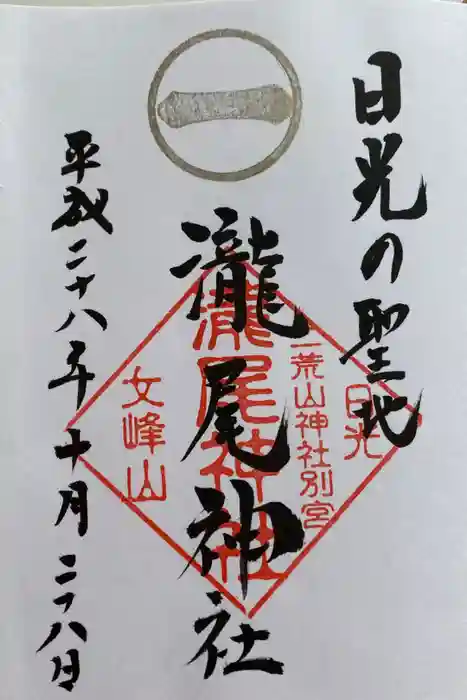 日光の聖地
日光
二荒山神社別宮
瀧尾神社
瀧尾神社
女峰山
平成二十八年十月二十八日